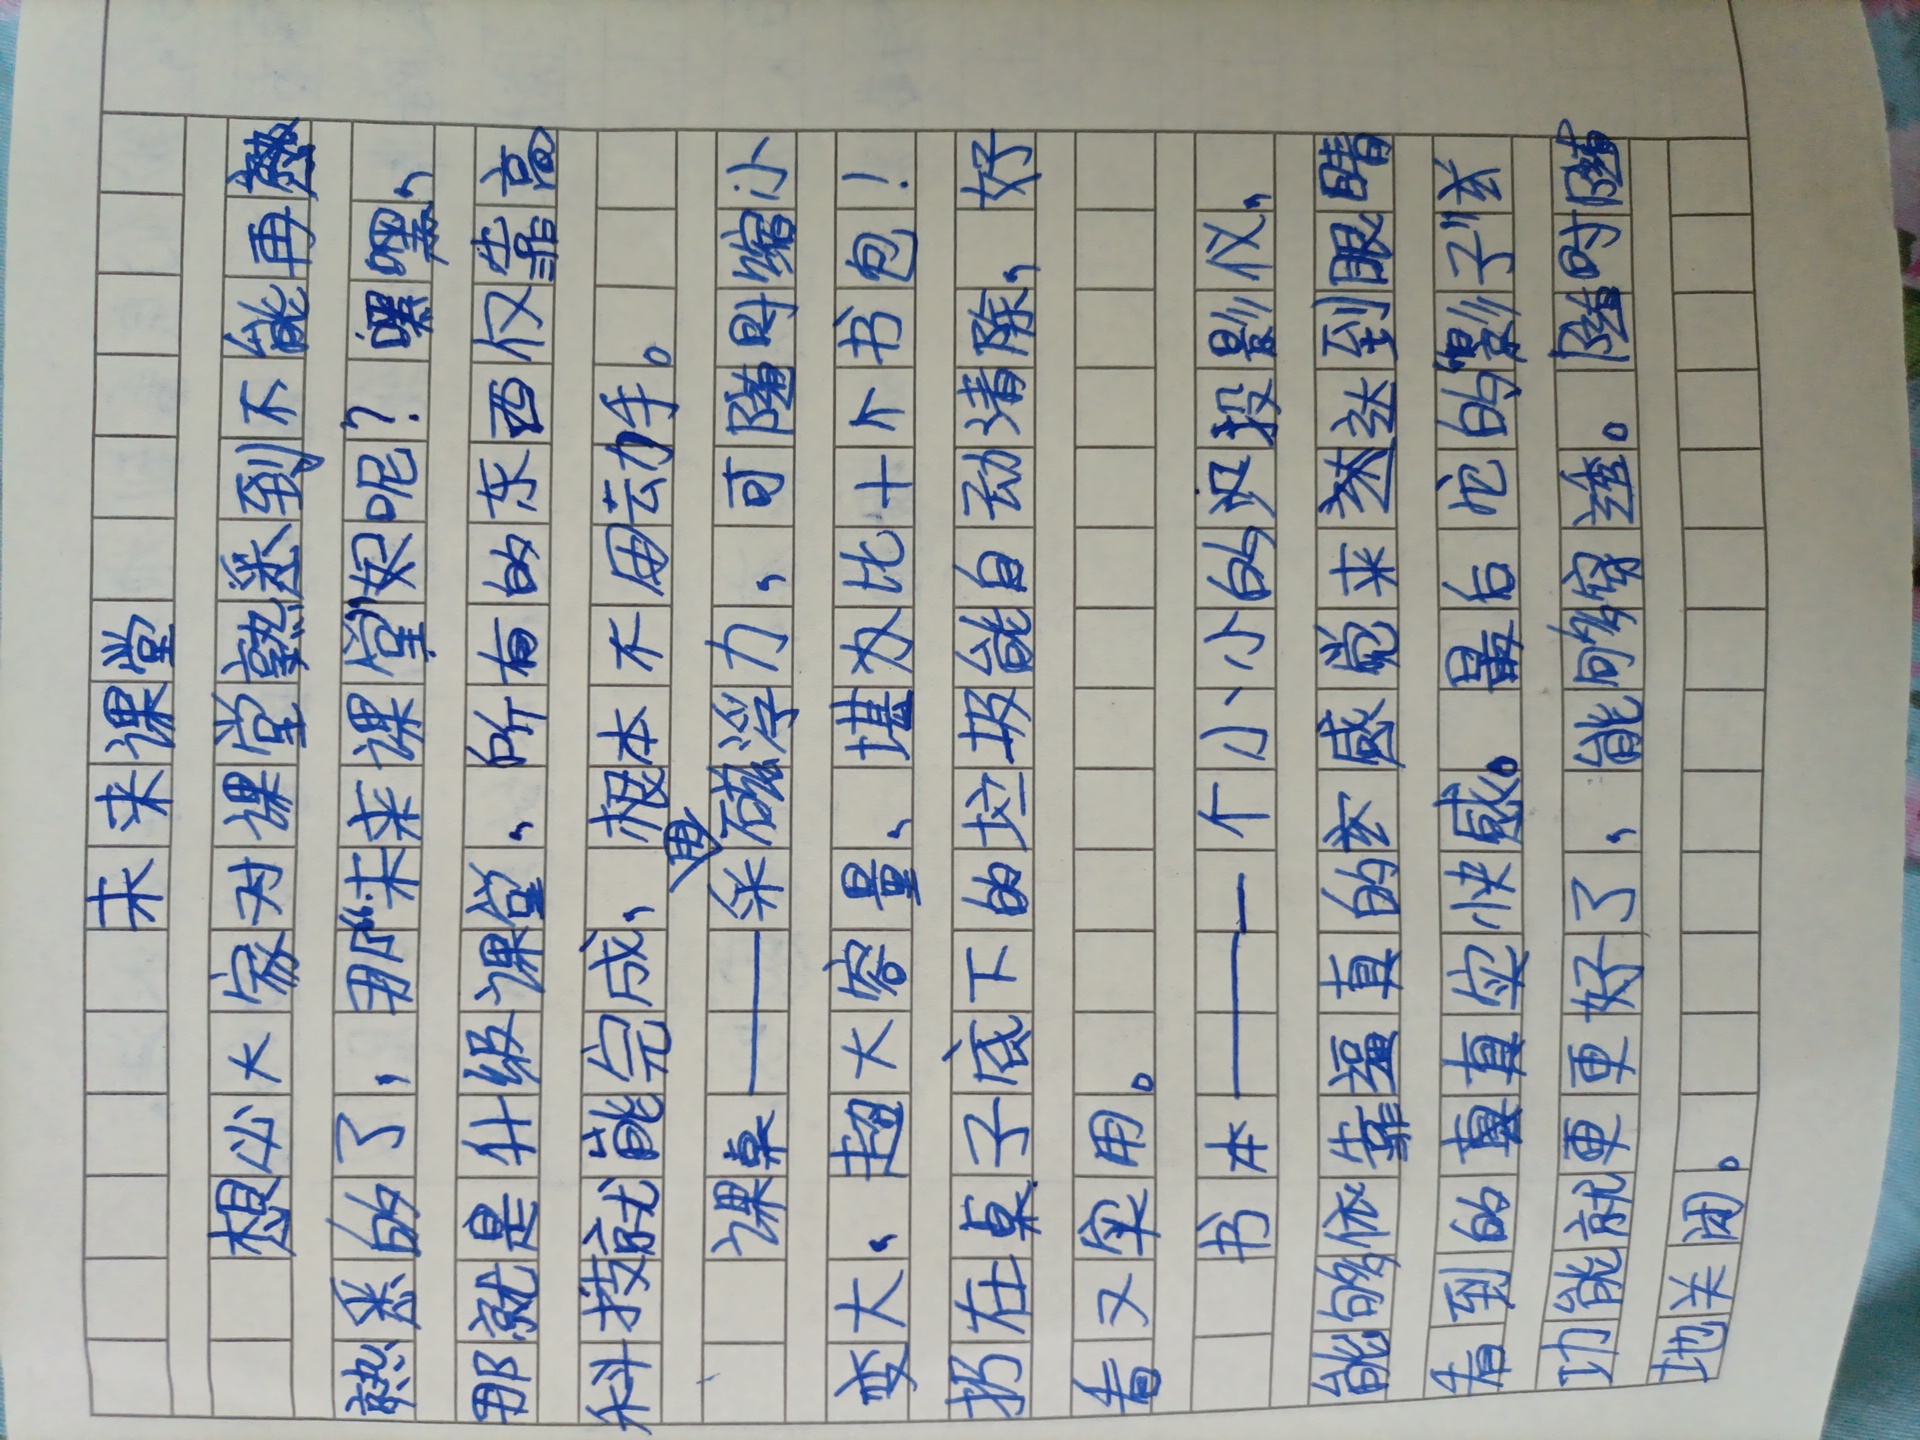 未来课堂
想必大家对课堂熟悉到不能再熟
熟悉的了，那“未来课堂”呢？嘿嘿，
那就是升级课堂，所有的东西仅靠高
科技就能完成，根本不用动手。
课桌——采用磁浮力，可随时缩小
变大，超大容量，堪比十个书包！
扔在桌子底下的垃圾能自动清除，好
看又实用。
书本——一个小小的投影仪，
能够依靠逼真的玄感觉来达到眼睛
看到的真真实快感。最后它的“影子”玄
功能就更更好了，能够穿透。随时随
地关闭。